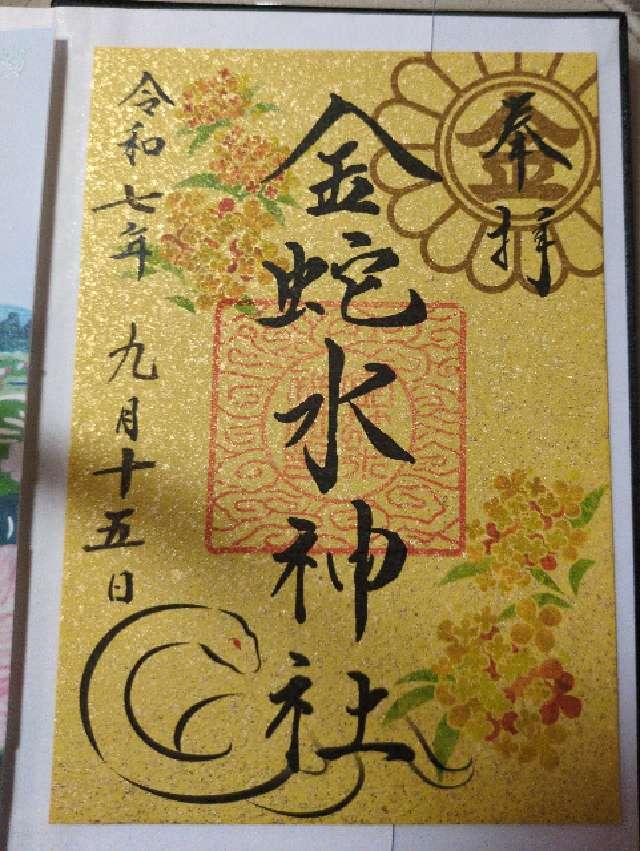 奉拝
金
金蛇水神社
令和七年 九月十五日